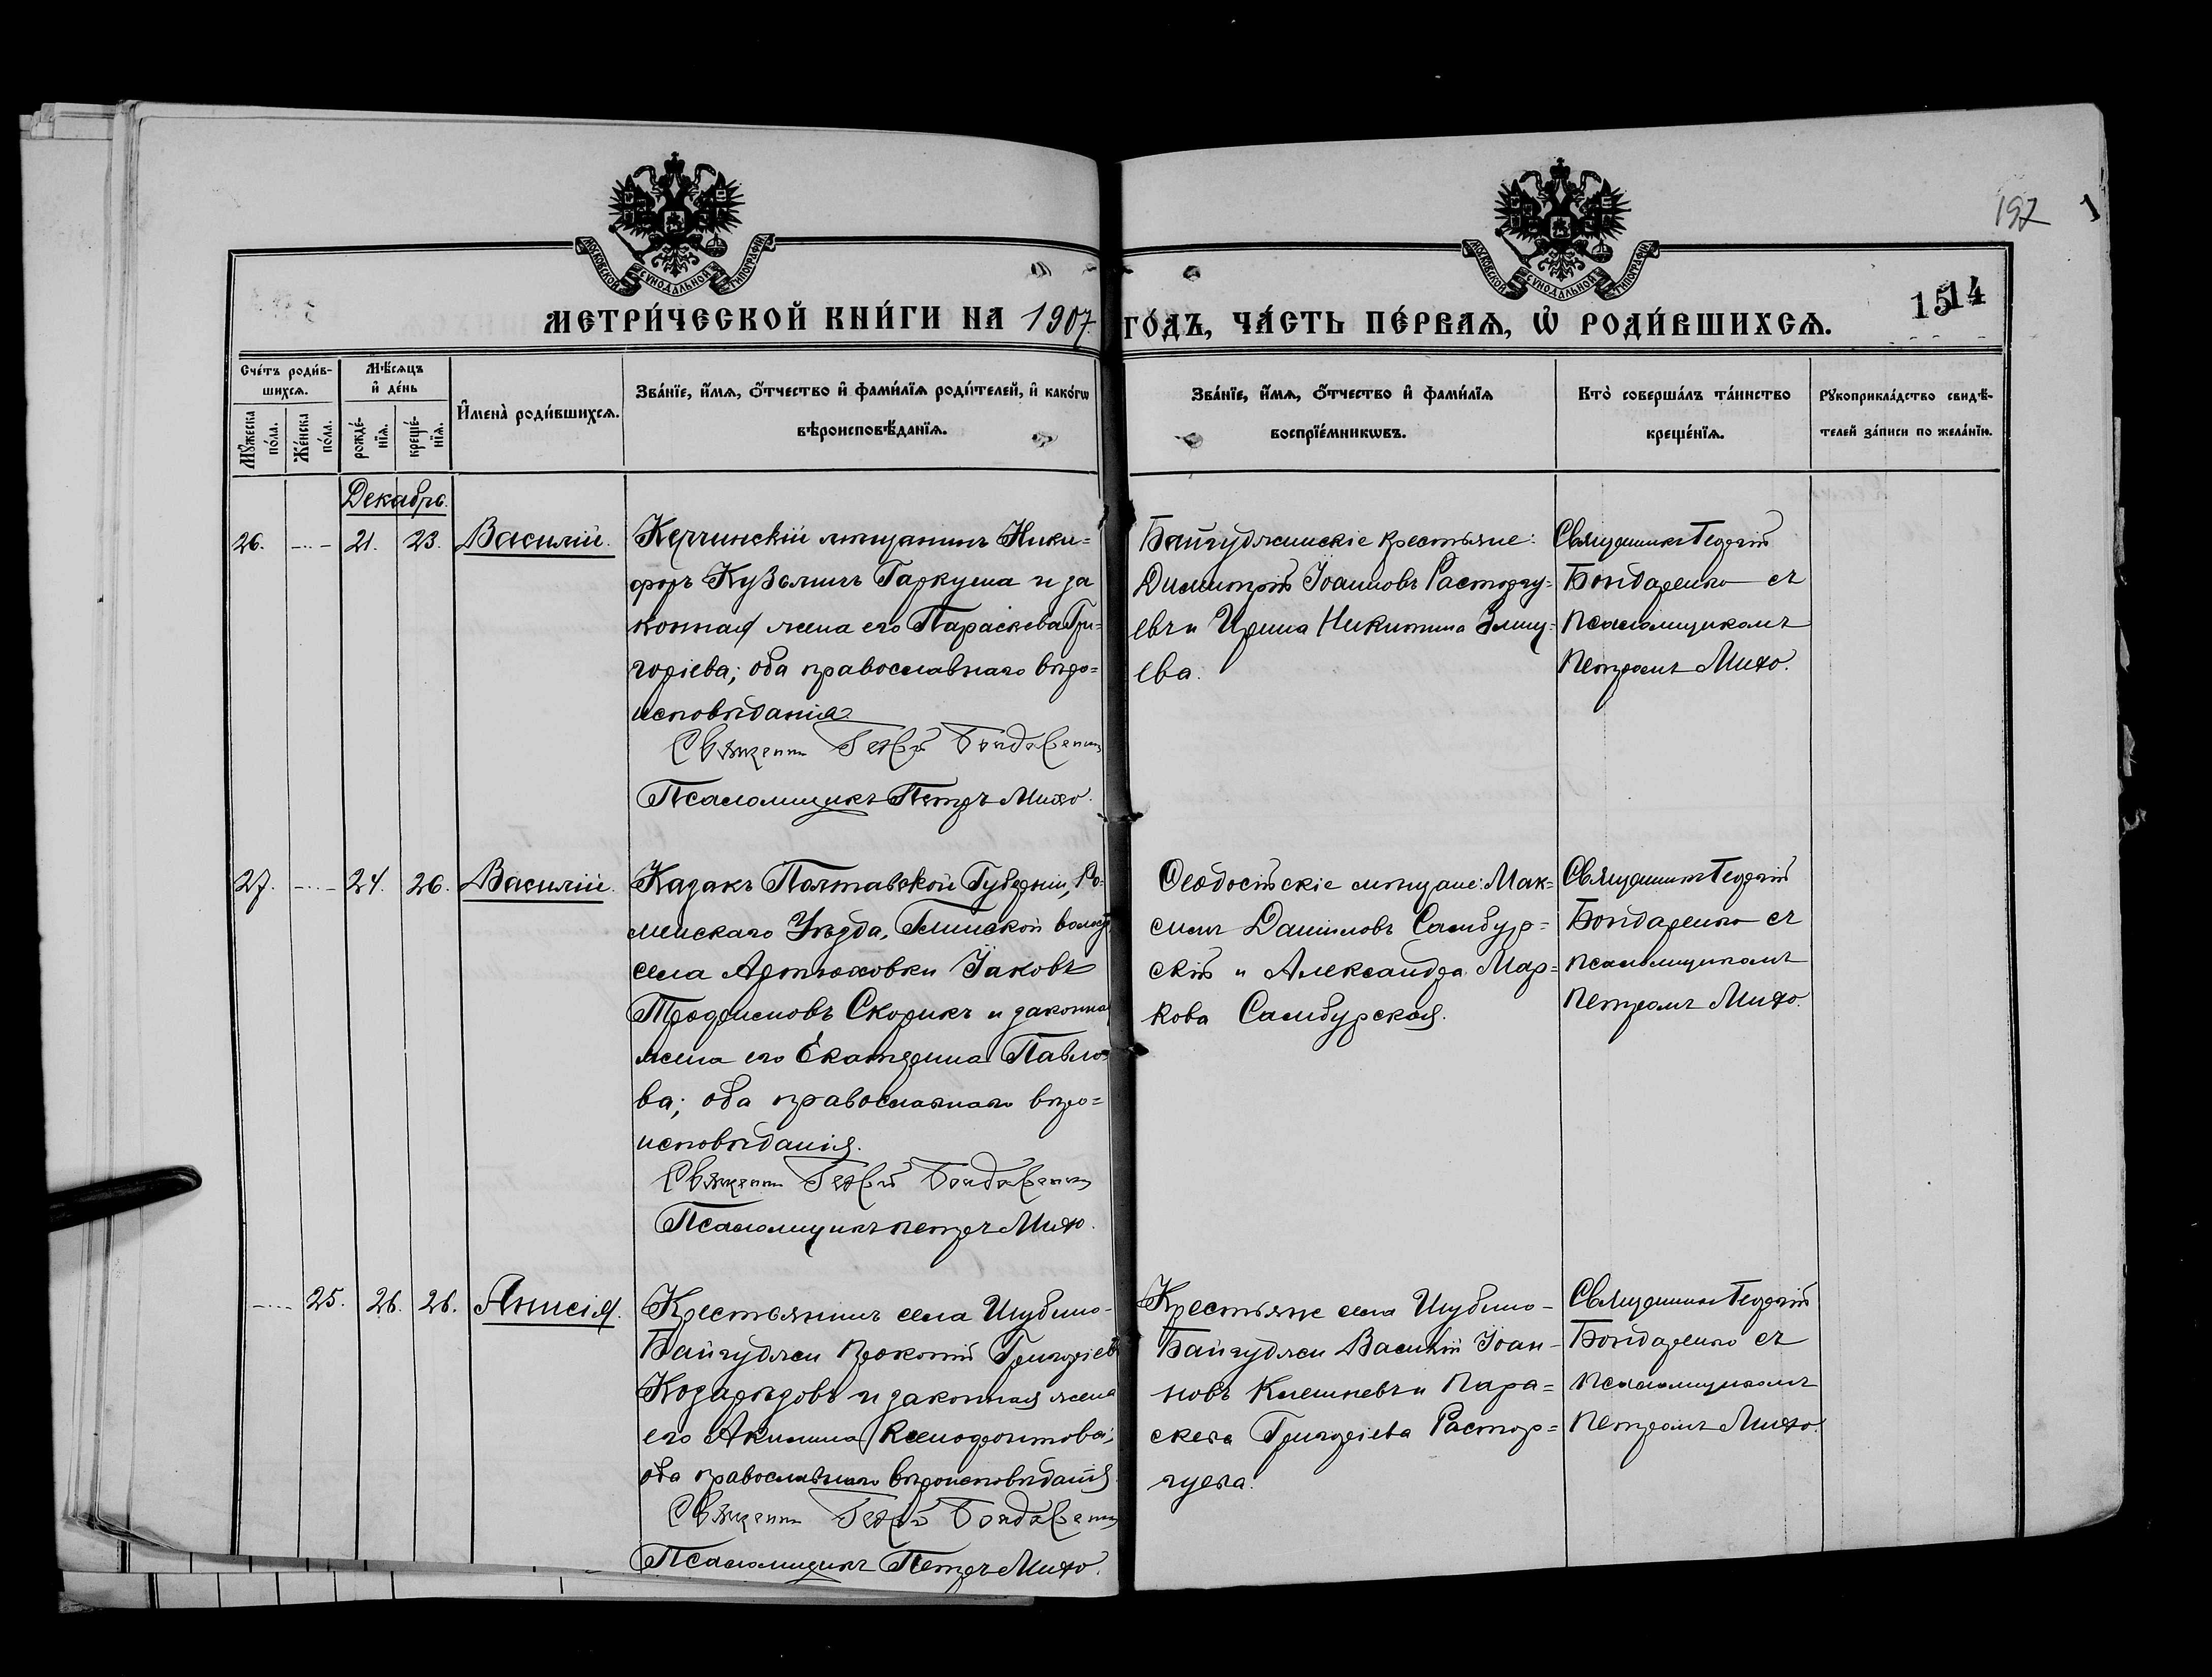 197
1
МОСКОВСКОЙ СѴНОДАЛЬНОЙ ТИПОГРАФІИ
МОСКОВСКОЙ СѴНОДАЛЬНОЙ ТИПОГРАФІИ
1514
МЕТРИ́ЧЕСКОЙ КНИ́ГИ НА 1907 ГО́ДЪ, ЧА́СТЬ ПЕ́РВАѦ, Ѡ РОДИ́ВШИХСѦ.
Сче́тъ роди́в-
шихсѧ.
Мꙋ́жеска по́ла.
Же́нска по́ла.
Мѣ́сѧцъ
и҆ де́нь
рожде́-
нїѧ.
креще́-
нїѧ.
И҆мена̀ роди́вшихсѧ.
Зва́нїе, и҆́мѧ, ѻ҆́тчество и҆ фами́лїѧ роди́телей, и҆ како́гѡ
вѣроисповѣ́данїѧ.
Зва́нїе, и҆́мѧ, ѻ҆́тчество и҆ фами́лїѧ
воспрїе́мникѡвъ.
Кто̀ соверша́лъ та́инство
креще́нїѧ.
Рꙋкоприкла́дство свидѣ́-
телей за́писи по жела́нїю.
Декабрь.
26. 21. 23. Василій.
Керчинскій мѣщанинъ Ники=
форъ Кузьмичъ Гаркуша и за
конная жена его Параскева Гри=
горіева; оба православнаго вѣро=
исповѣданія.
Священникъ Георгій Бондаренко
Псаломщикъ Петръ Михо.
Байгуджинскіе крестьяне:
Димитрій Іоанновъ Расторгу=
евъ и Ирина Никитина
ева.
Священникъ Георгій
Бондаренко съ
псаломщикомъ
Петромъ Михо.
27. 24. 26. Василій.
Казакъ Полтавской Губерніи, Ро=
менскаго Уѣзда, Глинской волос
села Артюховки Іаковъ
Трофимовъ Скорикъ и законная
жена его Екатерина Павло=
ва; оба православнаго вѣро=
исповѣданія.
Священникъ Георгій Бондаренко
Псаломщикъ Петръ Михо.
Ѳеодосійскіе мѣщане: Мак=
симъ Даниловъ Самбур=
скій и Александра Мар=
кова Самбурская.
Священникъ Георгій
Бондаренко съ
псаломщикомъ
Петромъ Михо.
25. 26. 26. Анисія.
Крестьянинъ села Шубино-
Байгуджи Прокопій Григоріевъ
Козарѣзовъ и законная жена
его Акилина Ксенофонтова;
оба православнаго вѣроисповѣданія.
Священникъ Георгій Бондаренко
Псаломщикъ Петръ Михо.
Крестьяне села Шубино-
Байгуджи Василій Іоан-
новъ Клешневъ и Пара=
скева Григоріева Растор=
гуева.
Священникъ Георгій
Бондаренко съ
псаломщикомъ
Петромъ Михо.